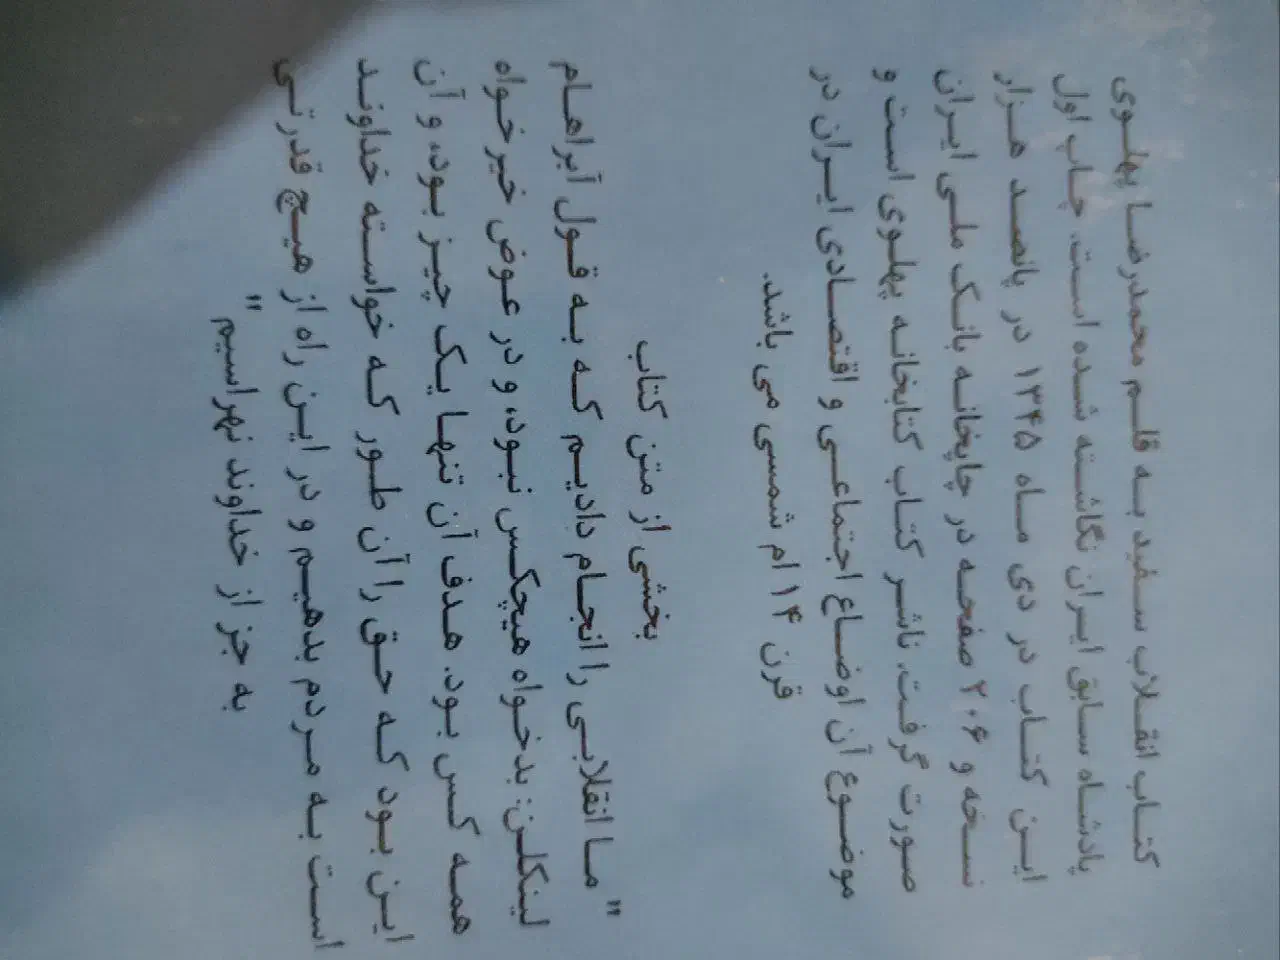 کتاب انقلاب سفید به قلم محمدرضا پهلوی
پادشاه سابق ایران نگاشته شده است. چاپ اول
این کتاب در دی ماه ۱۳۴۵ در پانصد هزار
نسخه و ۲۰۶ صفحه در چاپخانه بانک ملی ایران
صورت گرفت. ناشر کتاب کتابخانه پهلوی است و
موضوع آن اوضاع اجتماعی و اقتصادی ایران در
قرن ۱۴ ام شمسی می باشد.
بخشی از متن کتاب
"ما انقلابی را انجام دادیم که به قول آبراهام
لینکلن: بدخواه هیچکس نبود، و در عوض خیر خواه
همه کس بود. هدف آن تنها یک چیز بود، و آن
این بود که حق را آن طور که خواسته خداوند
است به مردم بدهیم و در این راه از هیچ قدرتی
به جز از خداوند نهراسیم"